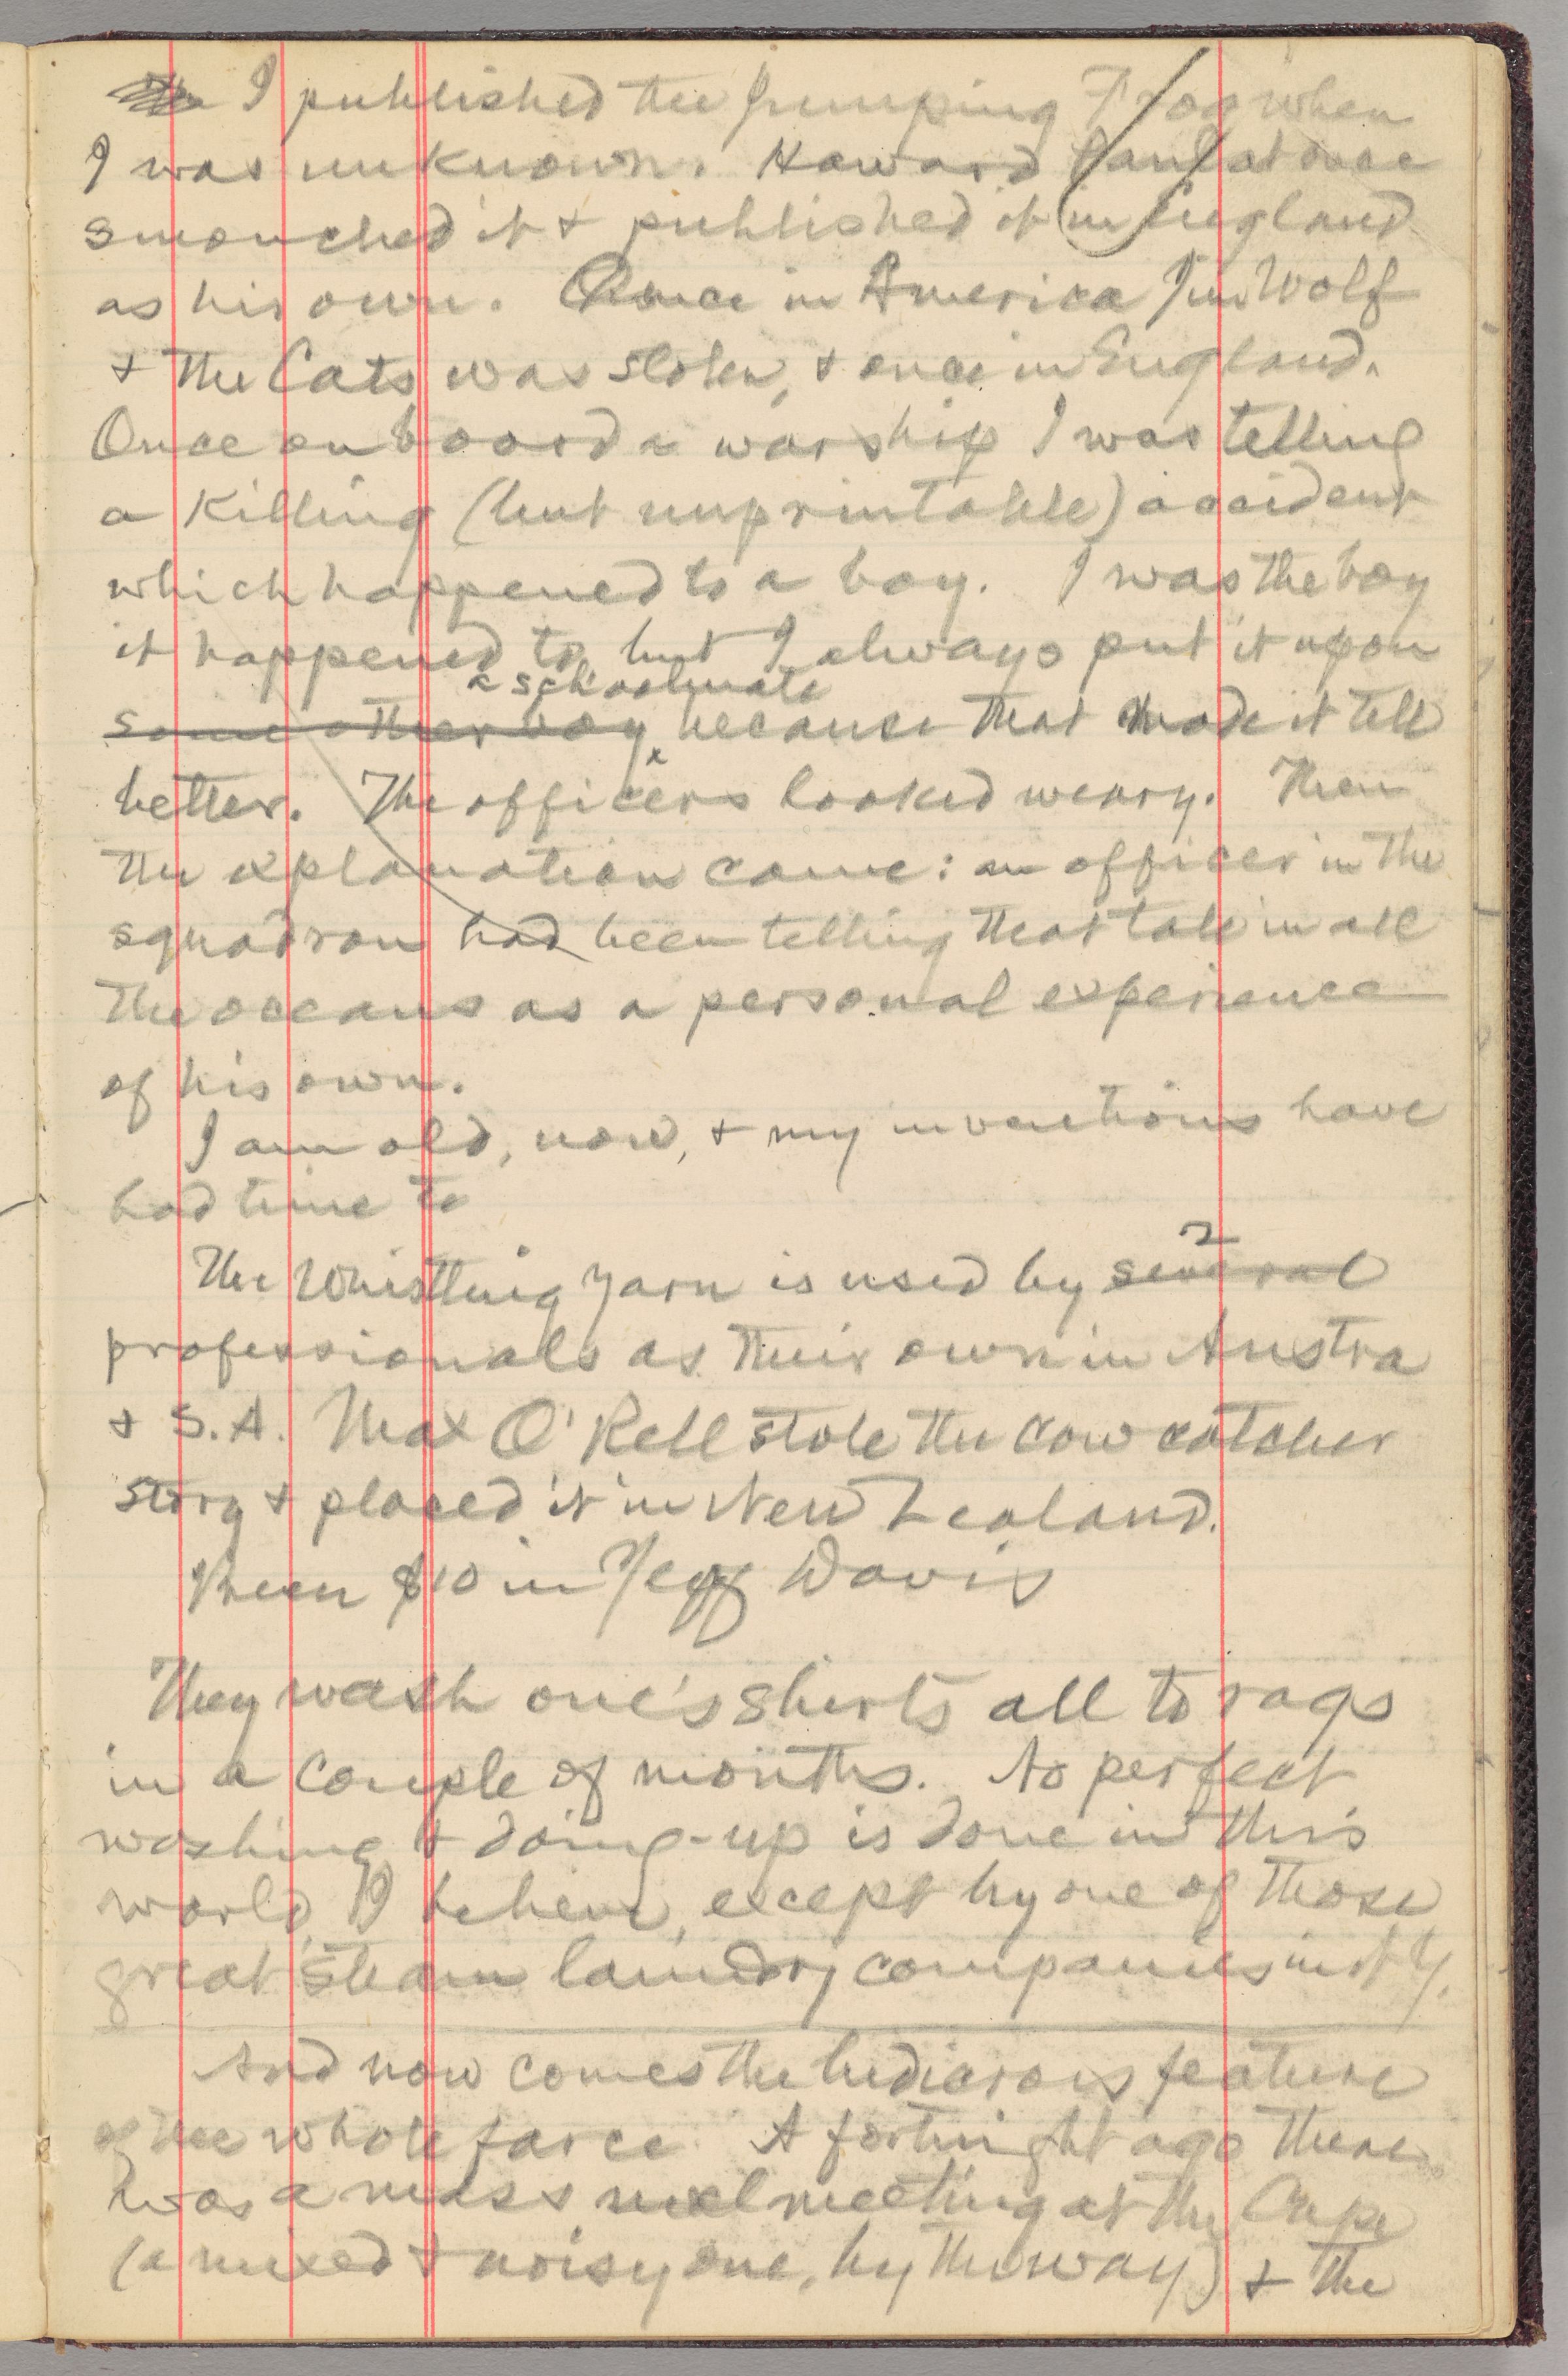 I published the Jumping Frog when
I was unknown. Howard Paul at once
smouched it & published it in England
as his own. Once in America Jim Wolf
& the Cats was stolen, & once in England.
Once on board a warship I was telling
a killing (but unprintable) accident
which happened to a boy. I was the boy
it happened to, but I always put it upon
a schoolmate
some other boy because that made it tell
better. The officers looked weary. Then
the explanation came: an officer in the
squadron had been telling that tale in all
the oceans as a personal experience
of his own.
I am old, now, & my inventions have
had time to
The Whistling Yarn is used by several
2
professionals as their own in Austra
& S.A. Max O'Rell stole the cow catcher
story & placed it in New Zealand.
$10 in Jeff Davis
They wash one's shirts all to rags
in a couple of months. No perfect
washing & doing-up is done in this
world, I believe, except by one of those
great steam laundry companies in N Y.
And now comes the ludicrous feature
of the whole farce. A fortnight ago there
was a mass meeting at the Cape
(a mixed & noisy one, by the way) & the